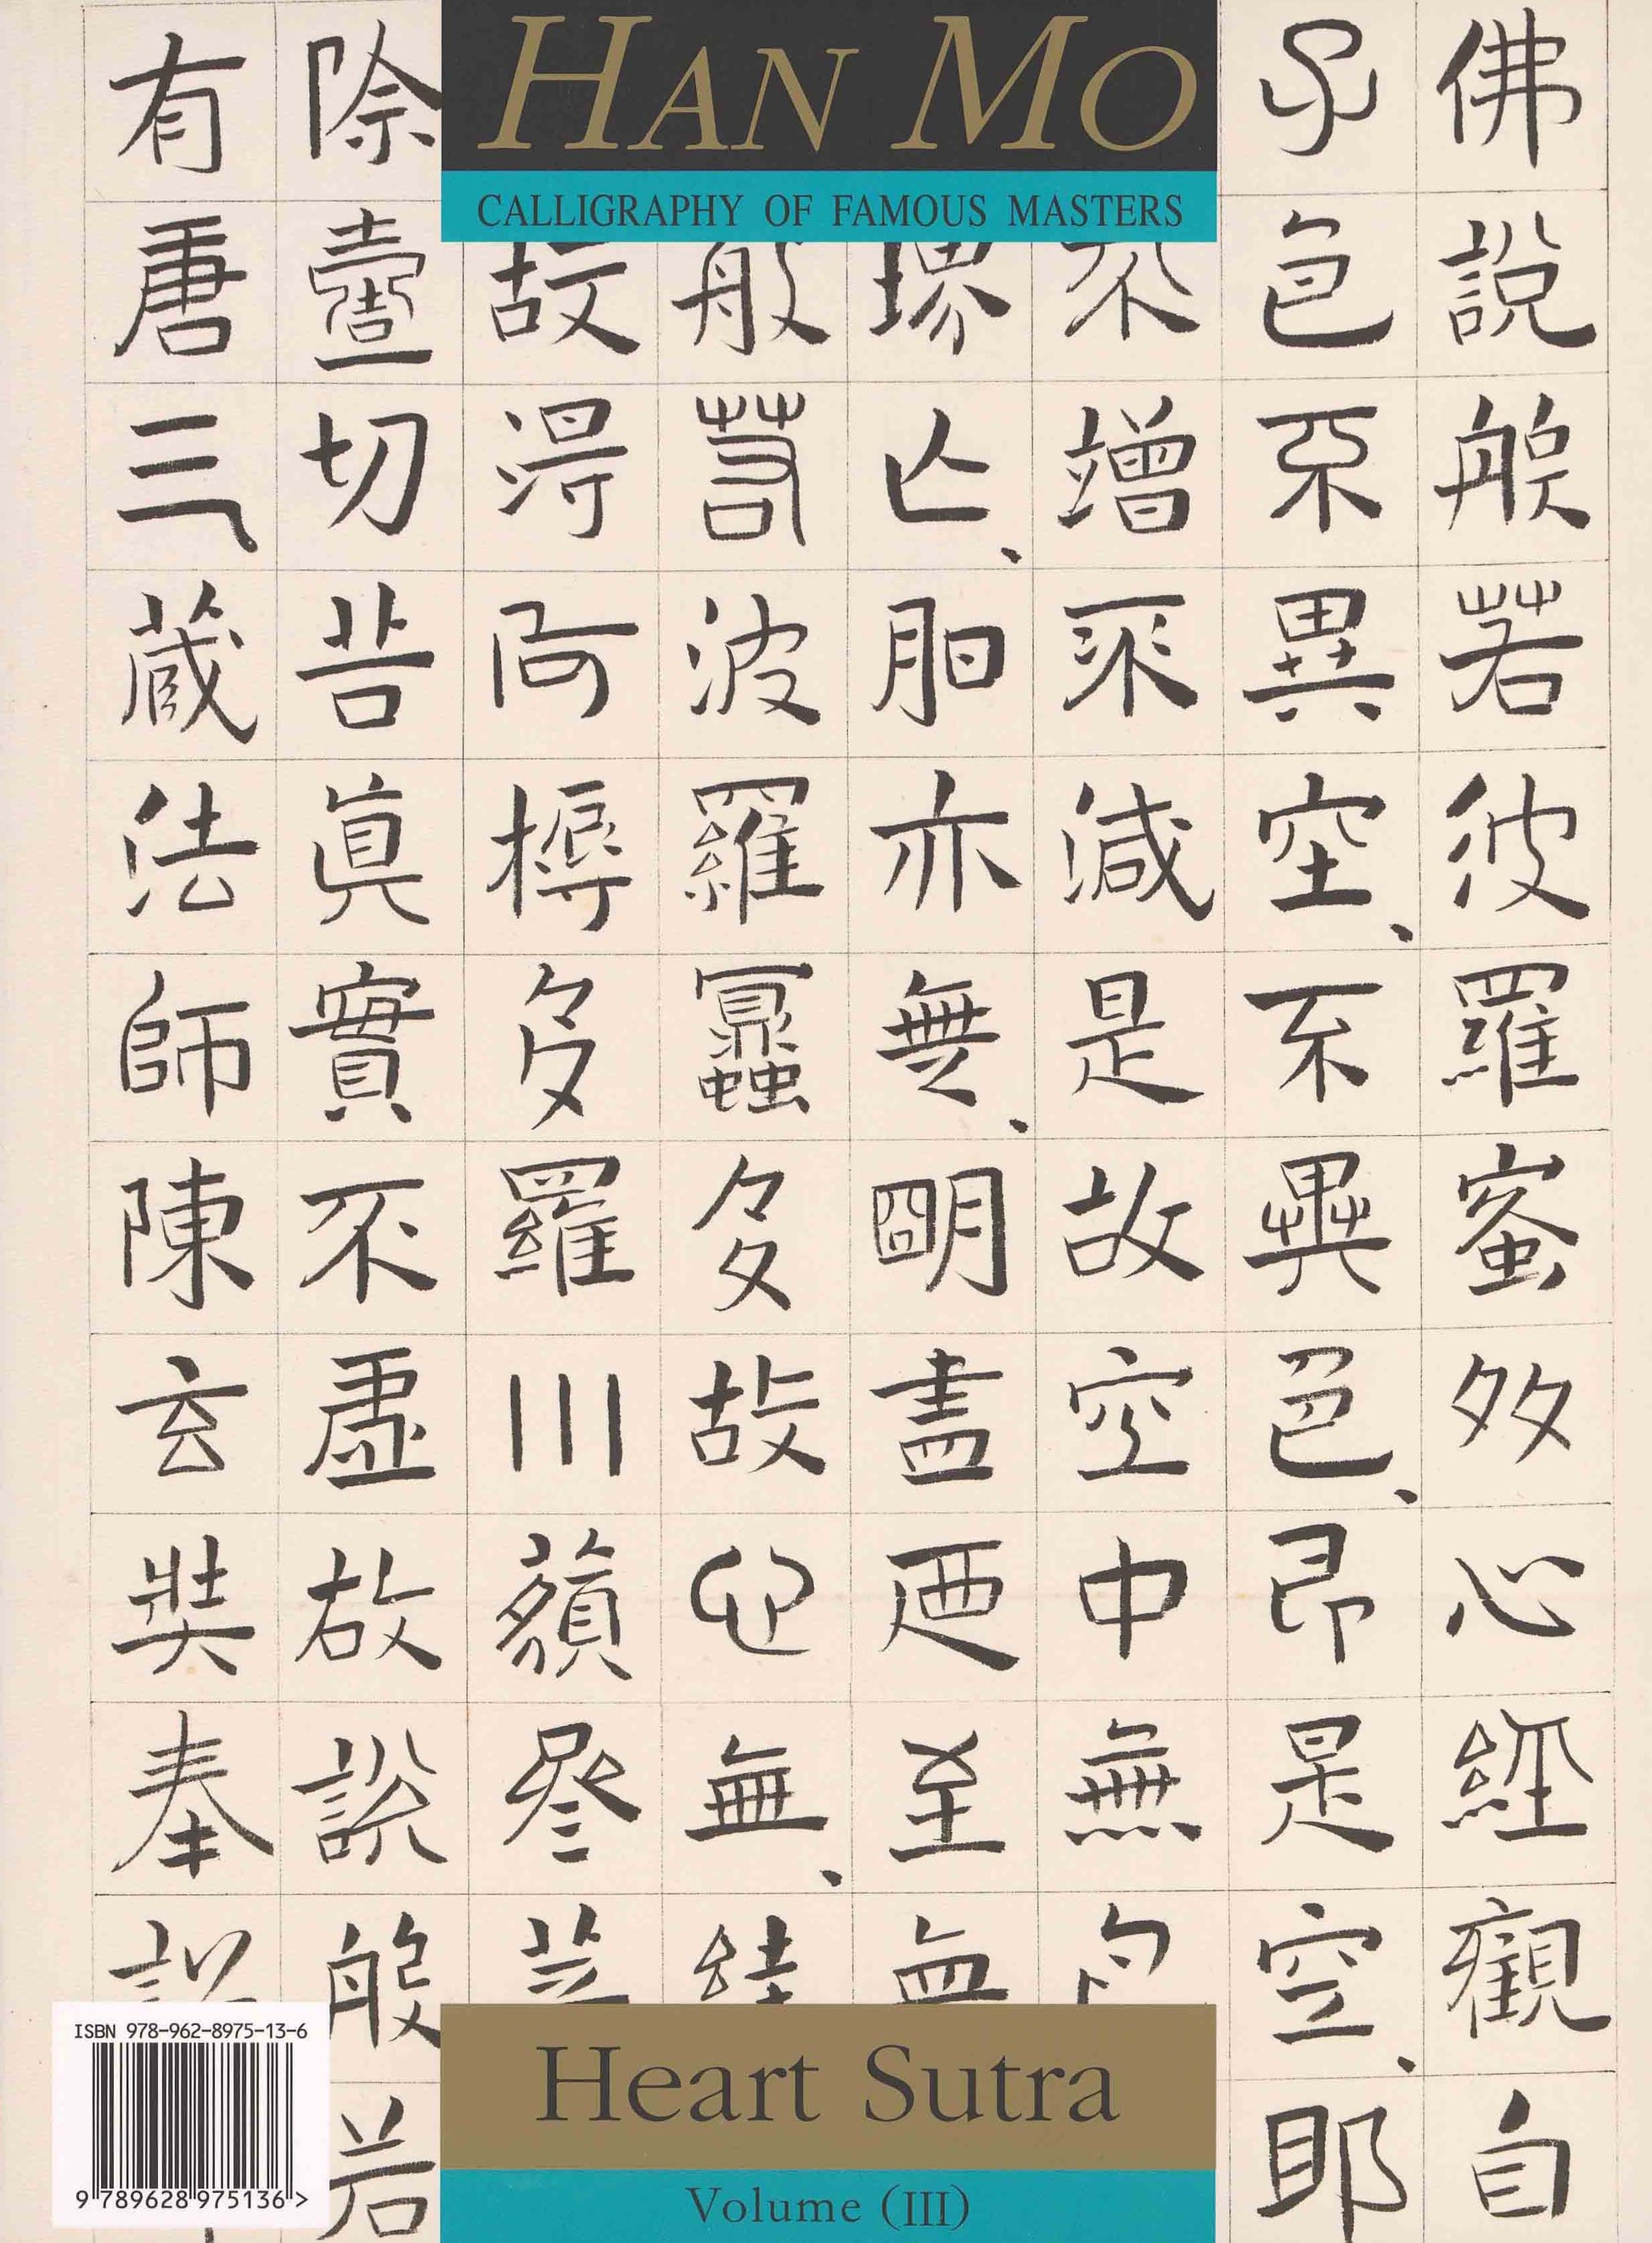 HAN MO
CALLIGRAPHY OF FAMOUS MASTERS
佛說般若波羅蜜多心經觀自
子色不異空不異色即是空耶
不增不減是故空中無
界亡胆亦無明盡迺至
般若波羅蜜多故心無
故得阿耨多羅三藐
除壹切苦眞實不虛故說般若
有唐三藏法師陳玄奘奉
Heart Sutra
Volume (III)
ISBN 978-962-8975-13-6
9 789628 975136 >